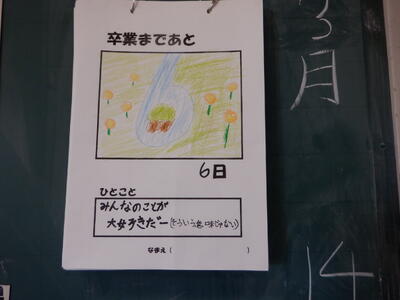 卒業まであと
6日
ひとこと
みんなのことが
大好きだー(そういう意味じゃない)
なまえ( )
3月
14